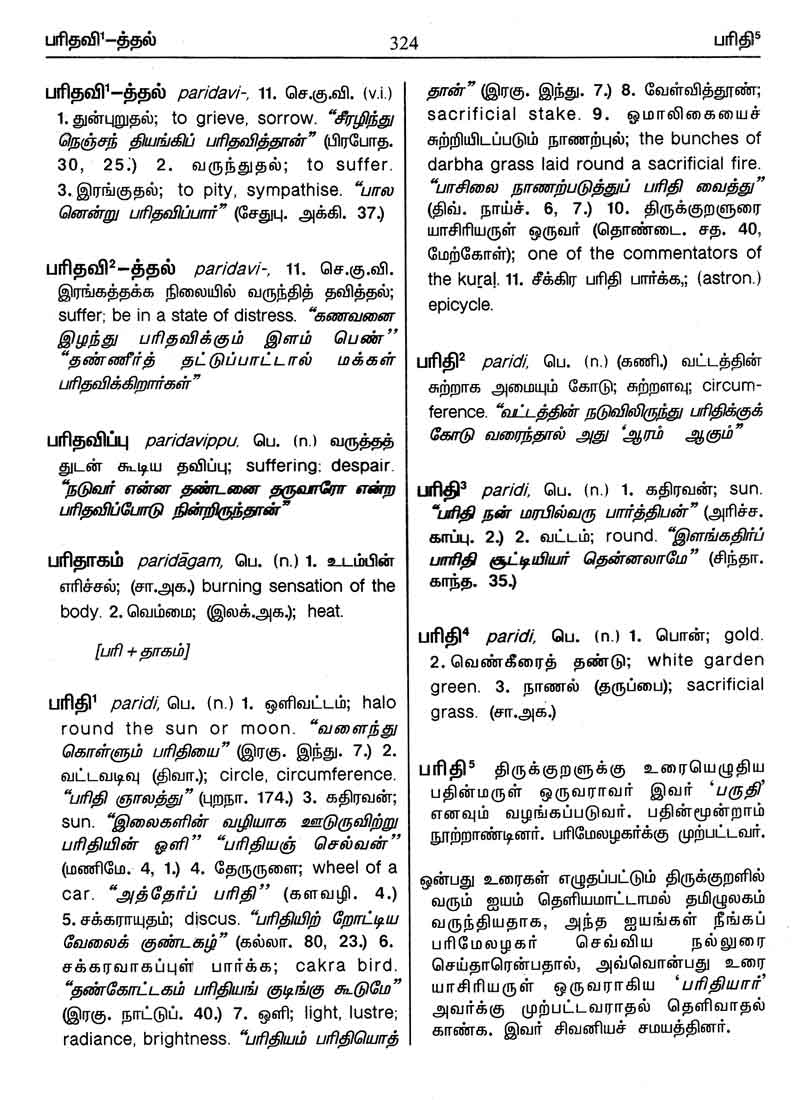 பரிதவி¹–த்தல்
324
பரிதி⁵
பரிதவி¹–த்தல் paridavi-, 11. செ.கு.வி. (v.i.)
1. துன்புறுதல்; to grieve, sorrow. “சீரழிந்து
நெஞ்சந் தியங்கிப் பரிதவித்தான்” (பிரபோத.
30, 25.) 2. வருந்துதல்; to suffer.
3. இரங்குதல்; to pity, sympathise. “பால
னென்று பரிதவிப்பார்” (சேதுபு. அக்கி. 37.)
பரிதவி²–த்தல் paridavi-, 11. செ.கு.வி.
இரங்கத்தக்க நிலையில் வருந்தித் தவித்தல்;
suffer; be in a state of distress. “கணவனை
இழந்து பரிதவிக்கும் இளம் பெண்”
“தண்ணீர்த் தட்டுப்பாட்டால் மக்கள்
பரிதவிக்கிறார்கள்”
பரிதவிப்பு paridavippu, பெ. (n.) வருத்தத்
துடன் கூடிய தவிப்பு; suffering: despair.
“நடுவர் என்ன தண்டனை தருவாரோ என்ற
பரிதவிப்போடு நின்றிருந்தான்”
பரிதாகம் paridāgam, பெ. (n.) 1. உடம்பின்
எரிச்சல்; (சா.அக.) burning sensation of the
body. 2. வெம்மை; (இலக்.அக.); heat.
[பரி + தாகம்]
பரிதி¹ paridi, பெ. (n.) 1. ஒளிவட்டம்; halo
round the sun or moon. “வளைந்து
கொள்ளும் பரிதியை” (இரகு. இந்து. 7.) 2.
வட்டவடிவு (திவா.); circle, circumference.
“பரிதி ஞாலத்து” (புறநா. 174.) 3. கதிரவன்;
sun. “இலைகளின் வழியாக ஊடுருவிற்று
பரிதியின் ஒளி” “பரிதியஞ் செல்வன்”
(மணிமே. 4, 1.) 4. தேருருளை; wheel of a
car. “அத்தேர்ப் பரிதி” (களவழி. 4.)
5. சக்கராயுதம்; discus. “பரிதியிற் றோட்டிய
வேலைக் குண்டகழ்” (கல்லா. 80, 23.) 6.
சக்கரவாகப்புள் பார்க்க; cakra bird.
“தண்கோட்டகம் பரிதியங் குடிங்கு கூடுமே”
(இரகு. நாட்டுப். 40.) 7. ஒளி; light, lustre;
radiance, brightness. “பரிதியம் பரிதியொத்
தான்” (இரகு. இந்து. 7.) 8. வேள்வித்தூண்;
sacrificial stake. 9. ஓமாலிகையைச்
சுற்றியிடப்படும் நாணற்புல்; the bunches of
darbha grass laid round a sacrificial fire.
“பாசிலை நாணற்படுத்துப் பரிதி வைத்து”
(திவ். நாய்ச். 6, 7.) 10. திருக்குறளுரை
யாசிரியருள் ஒருவர் (தொண்டை. சத. 40,
மேற்கோள்); one of the commentators of
the kuṟaḷ. 11. சீக்கிர பரிதி பார்க்க,; (astron.)
epicycle.
பரிதி² paridi, பெ. (n.) (கணி.) வட்டத்தின்
சுற்றாக அமையும் கோடு; சுற்றளவு; circum-
ference. “வட்டத்தின் நடுவிலிருந்து பரிதிக்குக்
கோடு வரைந்தால் அது ‘ஆரம் ஆகும்”
பரிதி³ paridi, பெ. (n.) 1. கதிரவன்; sun.
“பரிதி நன் மரபில்வரு பார்த்திபன்” (அரிச்ச.
காப்பு. 2.) 2. வட்டம்; round. “இளங்கதிர்ப்
பாரிதி சூட்டியியர் தென்னலாமே” (சிந்தா.
காந்த. 35.)
பரிதி⁴ paridi, பெ. (n.) 1. பொன்; gold.
2. வெண்கீரைத் தண்டு; white garden
green. 3. நாணல் (தருப்பை); sacrificial
grass. (சா.அக.)
பரிதி⁵ திருக்குறளுக்கு உரையெழுதிய
பதின்மருள் ஒருவராவர் இவர் ‘பருதி’
எனவும் வழங்கப்படுவர். பதின்மூன்றாம்
நூற்றாண்டினர். பரிமேலழகர்க்கு முற்பட்டவர்.
ஒன்பது உரைகள் எழுதப்பட்டும் திருக்குறளில்
வரும் ஐயம் தெளியமாட்டாமல் தமிழுலகம்
வருந்தியதாக, அந்த ஐயங்கள் நீங்கப்
பரிமேலழகர் செவ்விய நல்லுரை
செய்தாரென்பதால், அவ்வொன்பது உரை
யாசிரியருள் ஒருவராகிய ‘பரிதியார்’
அவர்க்கு முற்பட்டவராதல் தெளிவாதல்
காண்க. இவர் சிவனியச் சமயத்தினர்.